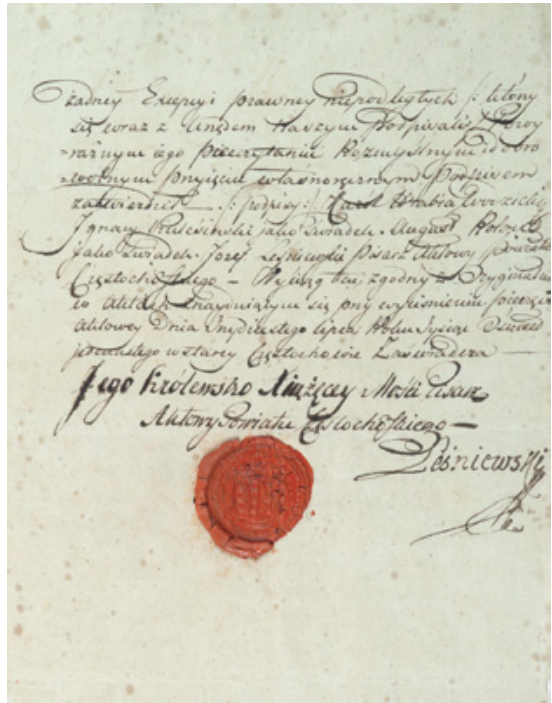 Żadney Excepcyi prawney niepodległych /: którzy
się wraz z Urzędem Naszym Podpisali
=raźnym iego Przeczytaniu Rozmyślnym i dobro
=wolnym przyięciu własnoręcznym Podpisem
zatwierdzili — /: podpisy :/ Karol Hrabia
Ignacy jako Świadek. August
Jako Świadek. Jozef Leśniewski Pisarz Aktowy powiatu
Częstochskiego — Wyciąg ten zgodny z Oryginałem
Aktach znayduiącym się przy wyciśnieniu pieczęci
Aktowey Dnia Lipca Roku Tysiąc Osiemset
w starey Częstochowie Zaświadcza —
Jego Krolewsko Xiążęcey Mości Pisarz
Aktowy Powiatu Częstochskiego —
Leśniewski